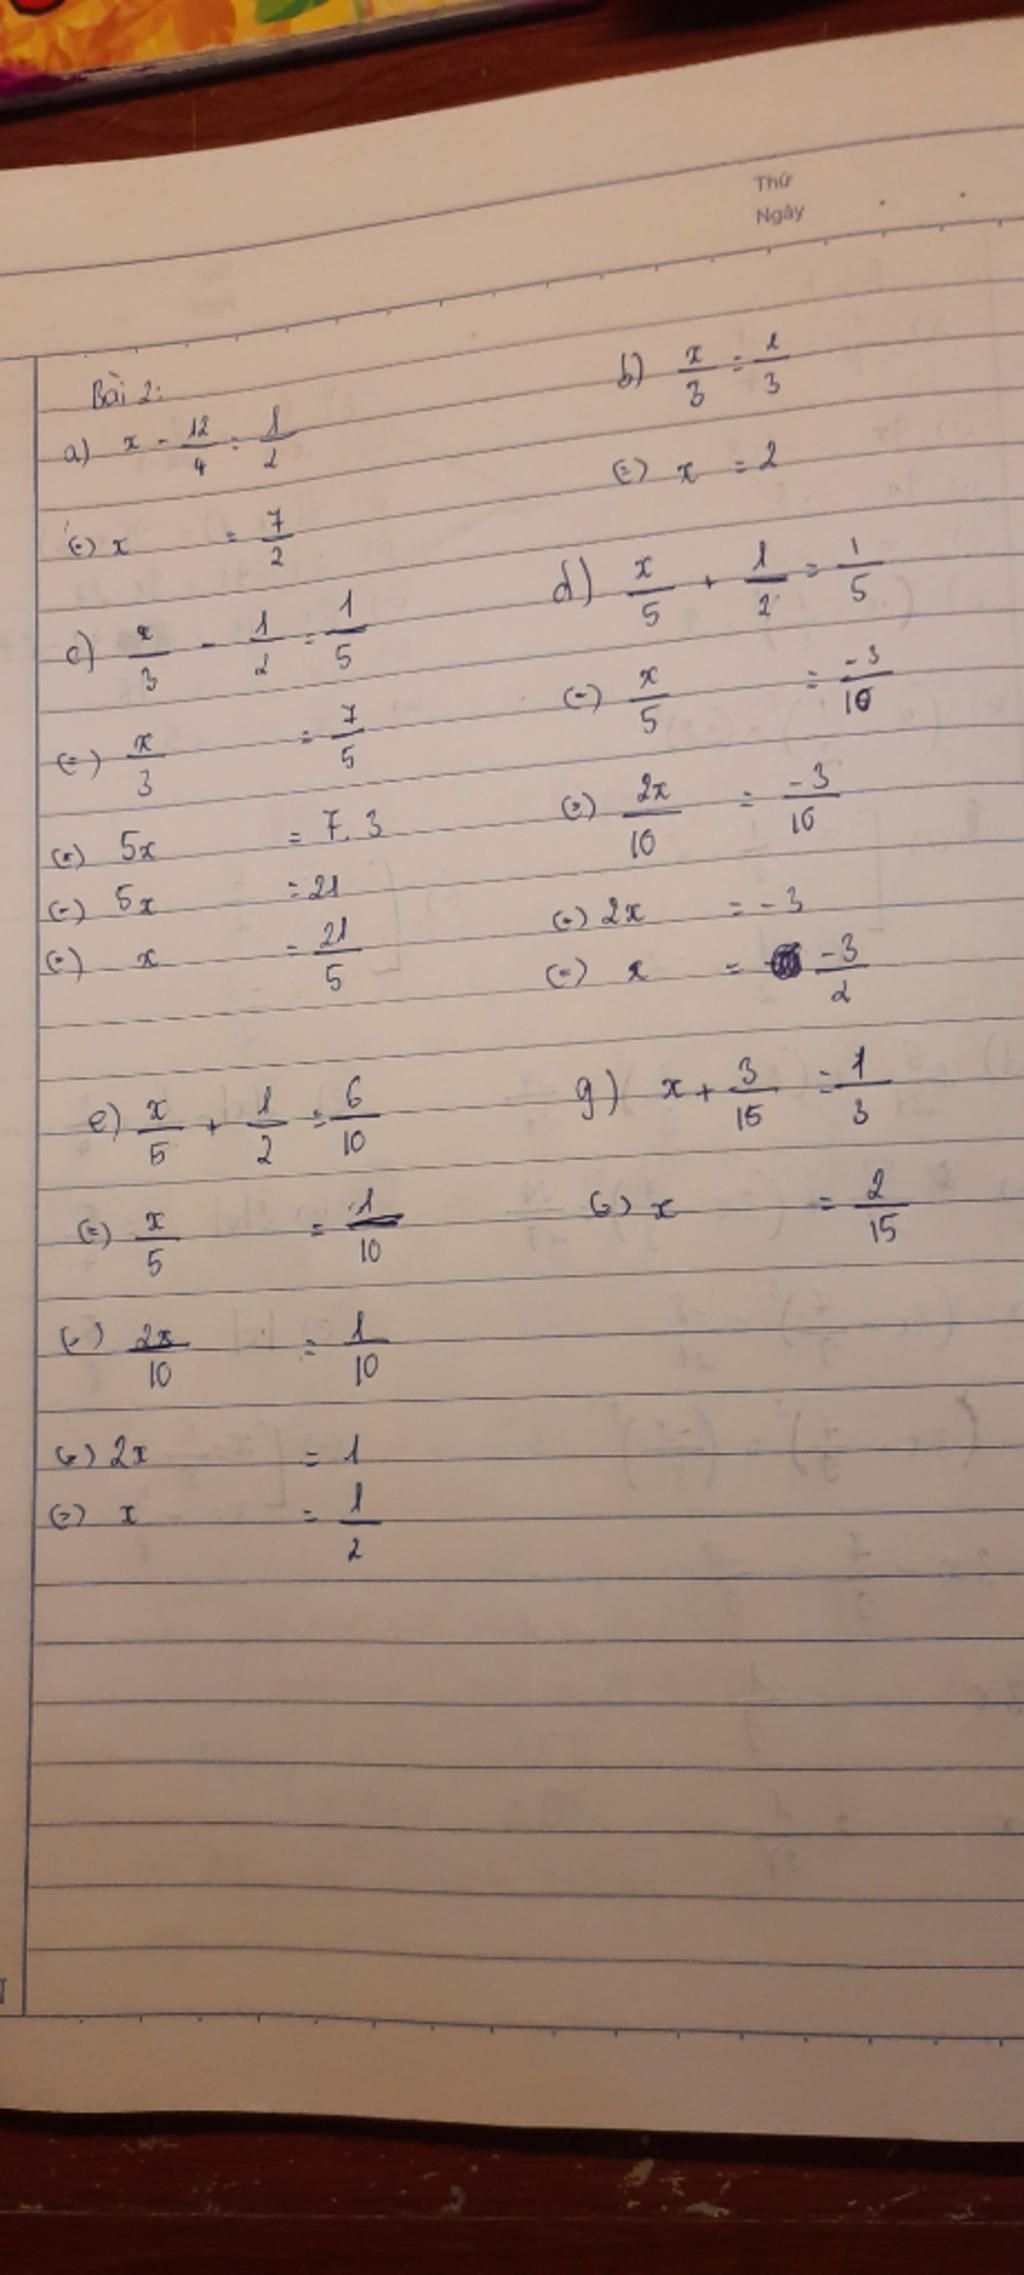 Thứ
Ngày
Bài 2:
a) x - 12/4 = 1/2
(=) x = 7/2
b) x/3 = 2/3
(=) x = 2
c) x/3 - 1/2 = 1/5
(=) x/3 = 7/5
(=) 5x = 7.3
(=) 5x = 21
(=) x = 21/5
d) x/5 + 1/2 = 1/5
(=) x/5 = -3/10
(=) 2x/10 = -3/10
(=) 2x = -3
(=) x = -3/2
e) x/5 + 1/2 = 6/10
(=) x/5 = 1/10
(=) 2x/10 = 1/10
(=) 2x = 1
(=) x = 1/2
g) x + 3/15 = 1/3
(=) x = 2/15